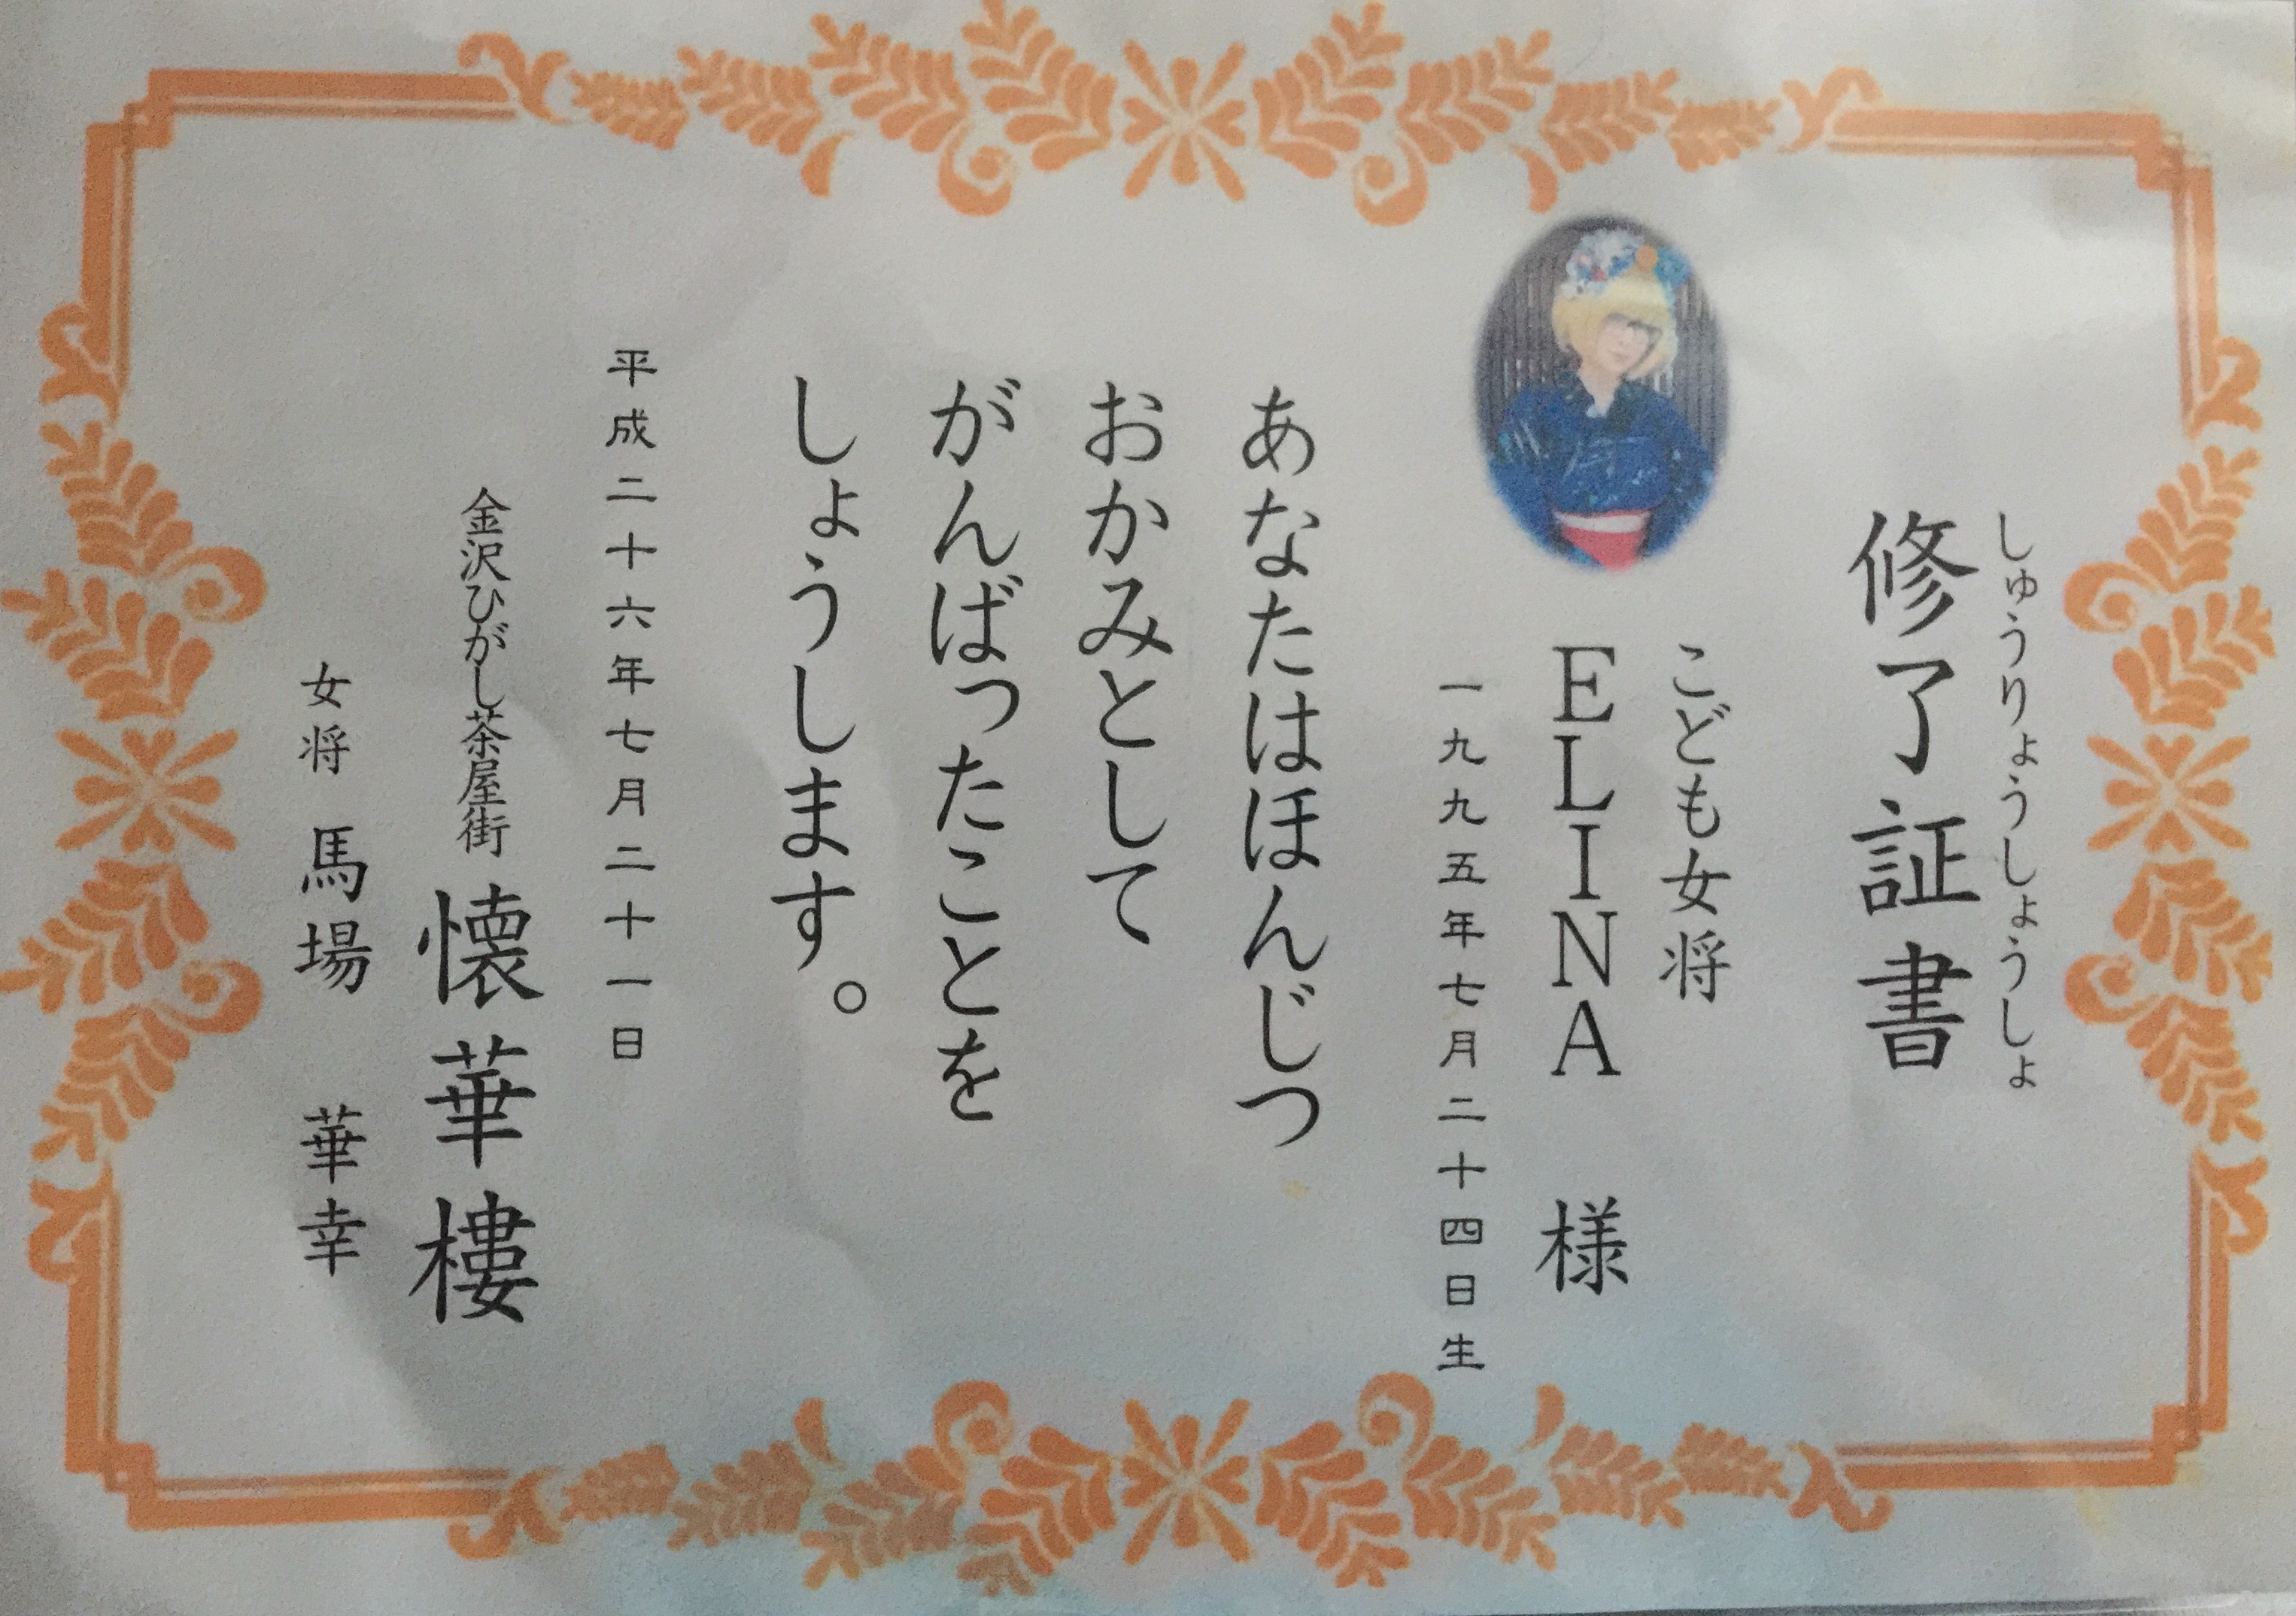 しゅうりょうしょうしょ
修了証書
こども女将
ELINA 様
一九九五年七月二十四日生
あなたはほんじつ
おかみとして
がんばったことを
しょうします。
平成二十六年七月二十一日
金沢ひがし茶屋街 懐華樓
女将 馬場 華幸